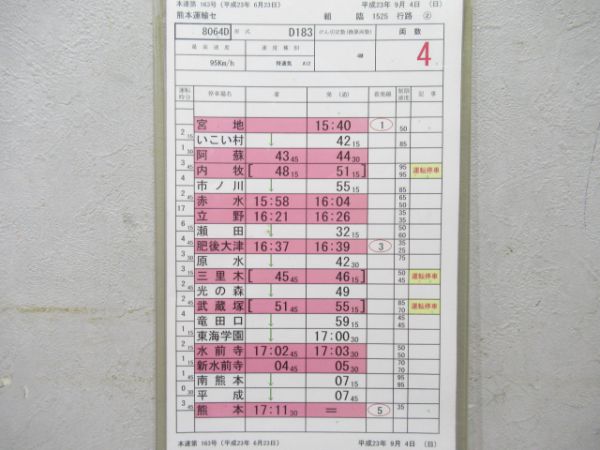 本運第 163号 (平成23年 6月23日) 平成23年 9月 4日 (日)
熊本運輸セ 組 臨 1525 行路 ②
8064D 形式 D183 けん引定数(換算両数) 両数
最高速度 速度種別 4
95Km/h 特通気
運転時分 停車場名 着 発(通) 着発線 制限速度 記事
宮地 15:40 ① 50
2 15 いこい村 ↓ 42 15
1 30 阿蘇 43 45 44 30 85
3 45 内牧 [ 48 15 51 15 ] 95 95 運転停車
4 市ノ川 ↓ 55 15 85
2 45 赤水 15:58 16:04
17 立野 16:21 16:26
瀬田 ↓ 32 15
肥後大津 16:37 16:39 ③ 35 25
原水 ↓ 42 30 75
三里木 [ 45 45 46 15 ] 50 45 運転停車
光の森 ↓ 49
武蔵塚 [ 51 45 55 15 ] 85 70 運転停車
竜田口 ↓ 59 15 45 45
東海学園 ↓ 17:00 30
水前寺 17:02 45 17:03 30 50 50
新水前寺 04 45 05 30
南熊本 ↓ 07 15 95 95
平成 ↓ 07 45
3 45 熊本 17:11 30 = ⑤ 35
本運第 163号 (平成23年 6月23日) 平成23年 9月 4日 (日)